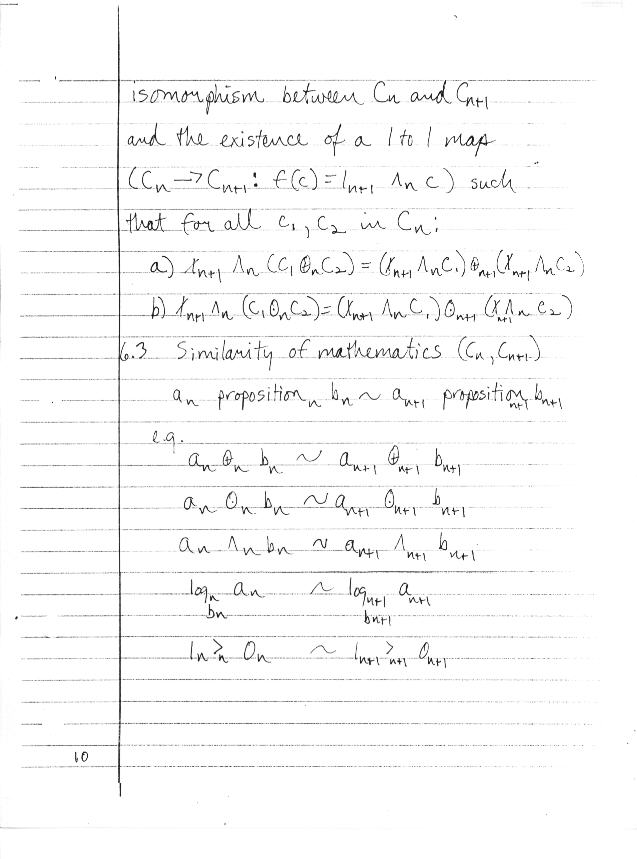 isomorphism between Cn and Cn+1
and the existence of a 1 to 1 map
(Cn → Cn+1 : f(c) = 1n+1 ∧n c) such
that for all c1, c2 in Cn:
a) xn+1 ∧n (c1 ⊕n c2) = (xn+1 ∧n c1) ⊕n+1 (xn+1 ∧n c2)
b) xn+1 ∧n (c1 ⊙n c2) = (xn+1 ∧n c1) ⊙n+1 (xn+1 ∧n c2)
6.3 Similarity of mathematics (Cn, Cn+1)
an propositionn bn ~ an+1 propositionn+1 bn+1
e.g.
an ⊕n bn ~ an+1 ⊕n+1 bn+1
an ⊙n bn ~ an+1 ⊙n+1 bn+1
an ∧n bn ~ an+1 ∧n+1 bn+1
logn an ~ logn+1 an+1
bn bn+1
1n >n 0n ~ 1n+1 >n+1 0n+1
10